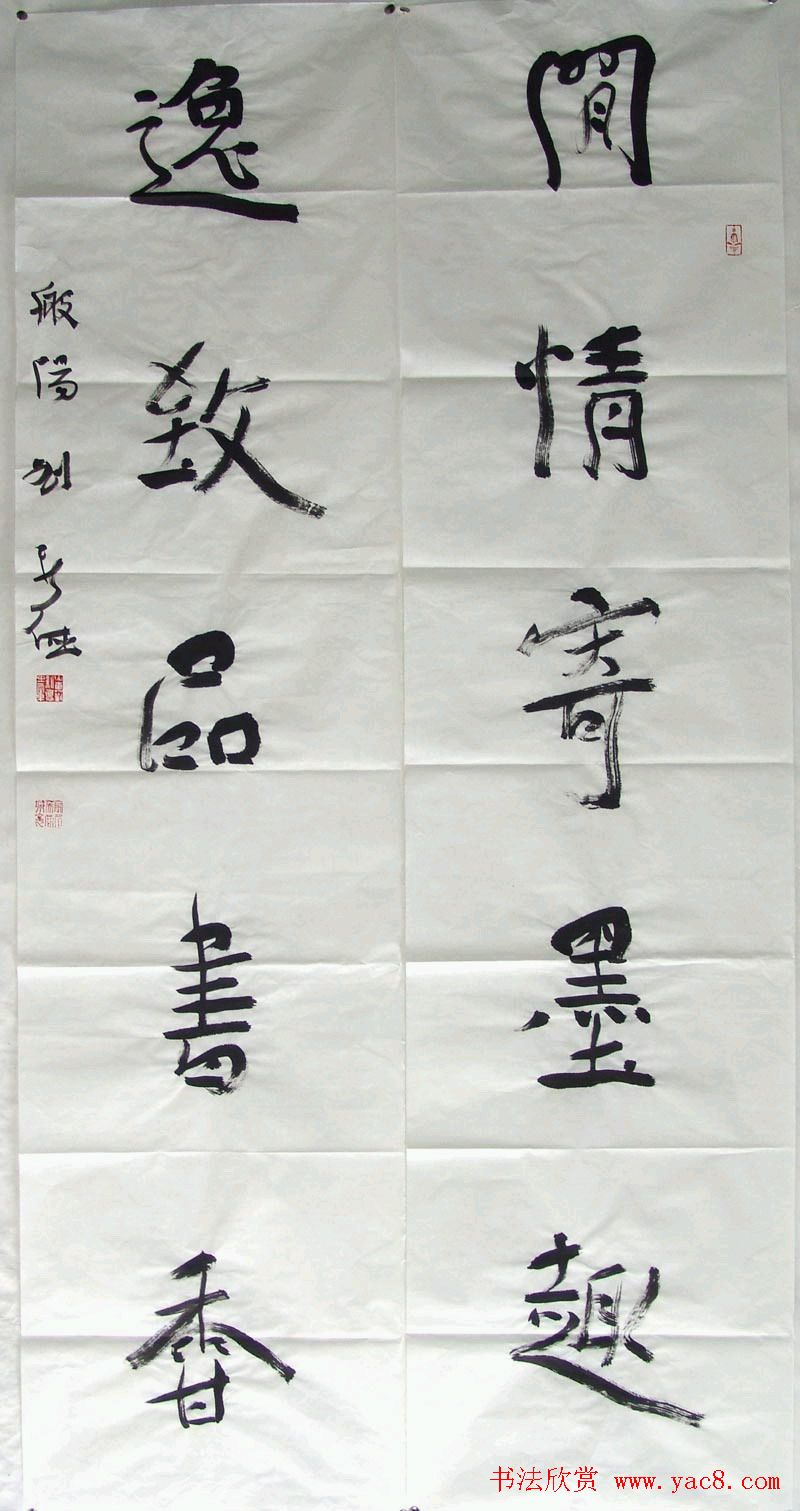 閒情寄墨趣
逸致品書香
般陽劉
书法欣赏 www.yac8.com